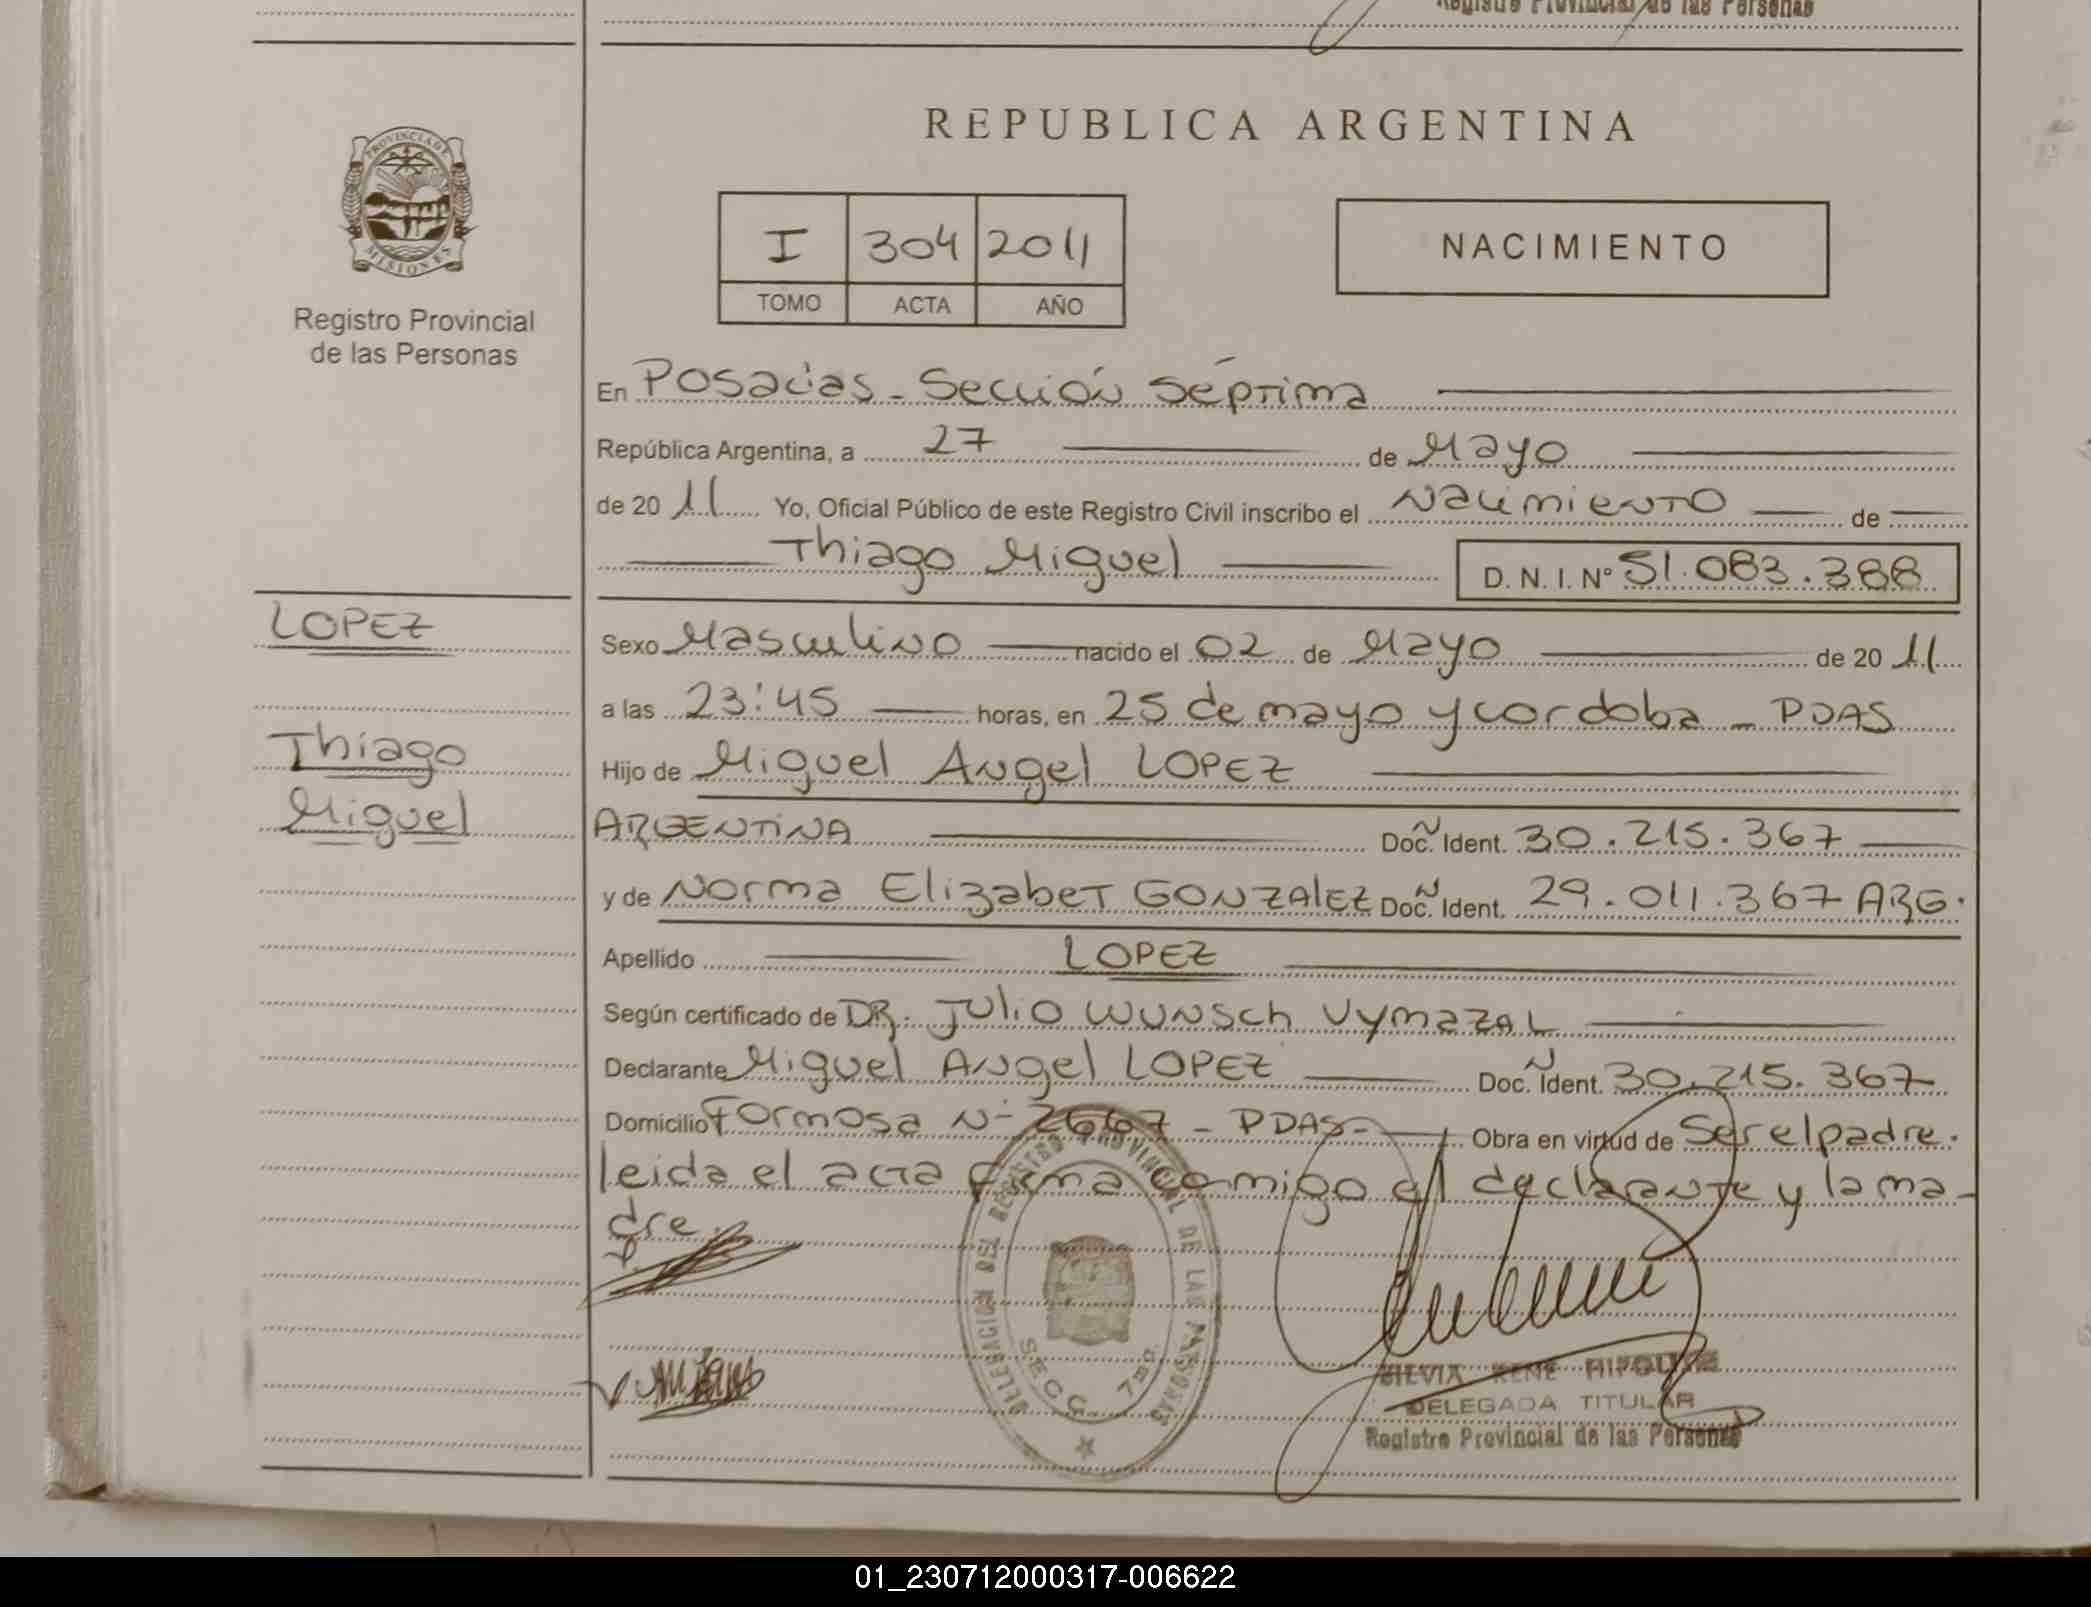 Registro Provincial de las Personas
PROVINCIA DE
MISIONES
Registro Provincial
de las Personas
REPUBLICA ARGENTINA
I 304 2011
TOMO ACTA AÑO
NACIMIENTO
En Posadas - Sección Séptima
República Argentina, a 27 de Mayo
de 2011 Yo, Oficial Público de este Registro Civil inscribo el Nacimiento de
Thiago Miguel D. N. I. Nº 51.083.388
LOPEZ
Thiago
Miguel
Sexo Masculino nacido el 02 de Mayo de 2011
a las 23:45 horas, en 25 de mayo y cordoba - PDAS
Hijo de Miguel Angel LOPEZ
ARGENTINA Doc. Ident. 30.215.367
y de Norma Elizabet GONZALEZ Doc. Ident. 29.011.367 ARG.
Apellido LOPEZ
Según certificado de DR. Julio WUNSch VymazAL
Declarante Miguel Angel LOPEZ Doc. Ident. 30.215.367
Domicilio Formosa N- 2667 - PDAS- Obra en virtud de Ser el padre.
leida el acta firma conmigo el declarante y la ma-
dre.
DELEGACION DEL REGISTRO PROVINCIAL DE LAS PERSONAS
SECC. 7ma.
SILVIA RENE
DELEGADA TITULAR
Registro Provincial de las Personas
01_230712000317-006622